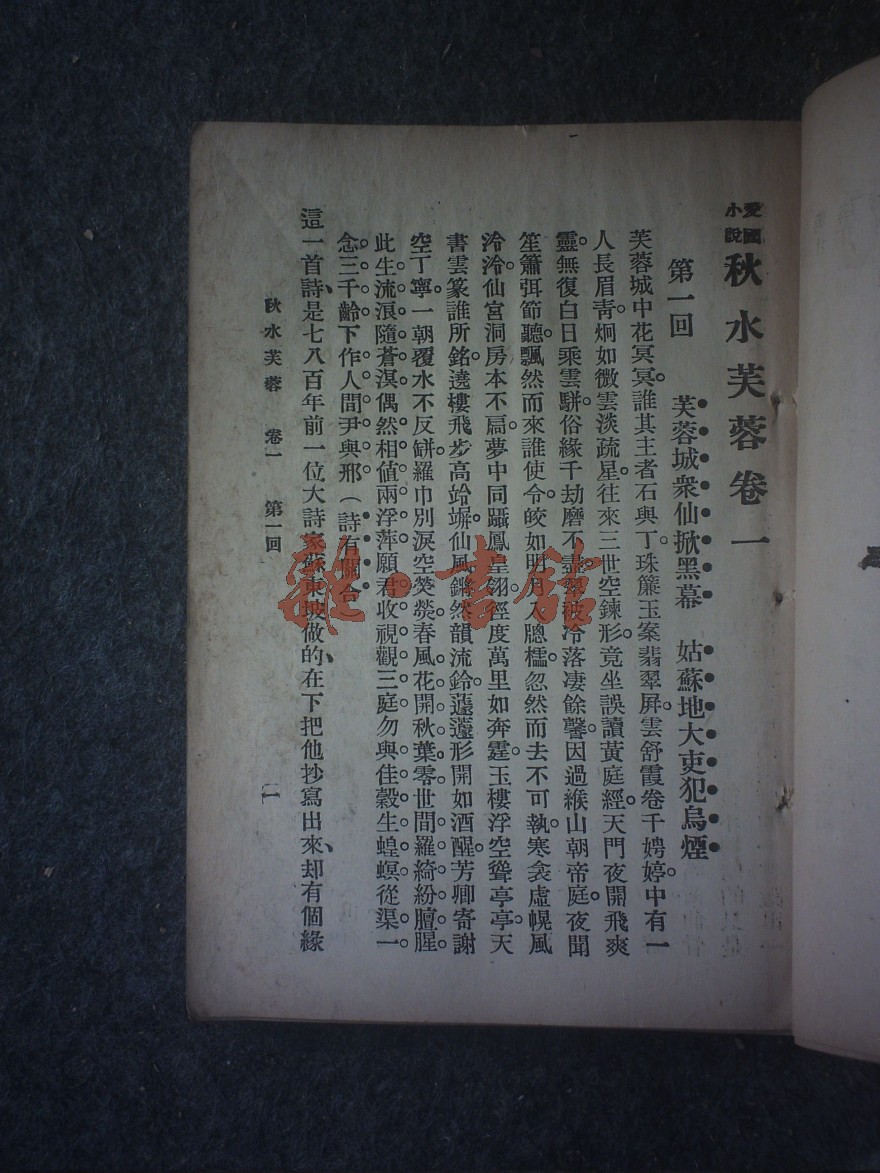 愛國小說 秋水芙蓉卷一
第一回 芙蓉城衆仙掀黑幕 姑蘇地大吏犯烏煙
芙蓉城中花冥冥。誰其主者石與丁。珠簾玉案翡翠屏。雲舒霞卷千娉婷。中有一
人長眉靑。炯如微雲淡疏星。往來三世空鍊形。竟坐誤讀黃庭經。天門夜開飛爽
靈。無復白日乘雲駢。俗緣千劫磨不盡。翠被冷落凄餘馨。因過緱山朝帝庭。夜聞
笙簫弭節聽。飄然而來誰使令。皎如明月入牕櫺。忽然而去不可執。寒衾虛幌風
泠泠。仙宮洞房本不扃。夢中同躡鳳皇翎。徑度萬里如奔霆。玉樓浮空聳亭亭。天
書雲篆誰所銘。遶樓飛步高竛竮。仙風鏘然韻流鈴。蘧蘧形開如酒醒。芳卿寄謝
空丁寧。一朝覆水不反缾。羅巾別淚空熒熒。春風花開秋葉零。世間羅綺紛膻腥。
此生流浪隨蒼溟。偶然相値兩浮萍。願君收視觀三庭。勿與佳穀生蝗螟。從渠一
念三千齡。下作人間尹與邢(詩有關合)
這一首詩、是七八百年前一位大詩家蘇東坡做的、在下把他抄寫出來、却有個緣
秋水芙蓉 卷一 第一回 一
雜·書館